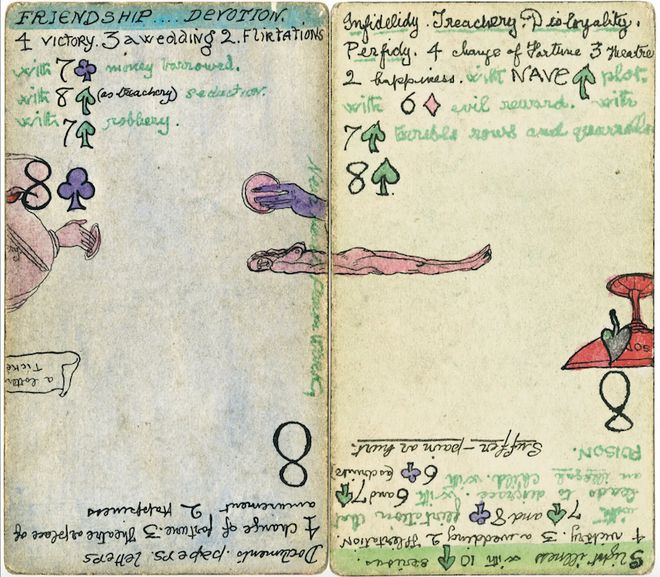 FRIENDSHIP .... DEVOTION.
4 VICTORY. 3 a wedding 2. FLIRTATIONS
with 7♣ money borrowed.
with 8♠ (as treachery) seduction.
with 7♠ robbery.
8♣
a lotter
Ticke
8
Documents. papers. letters
4 change of fortune. 3 Theatre or place of
amusement 2 Happiness
Infidelidy. Treachery. Disloyality.
Perfidy. 4 change of Fortune 3 Theatre
2 happiness. with NAVE ♠ plot.
with 6♦ evil reward. with
7♠ terrible rows and quarrels
8♠
8
Slight illness with 10♠ serious
4 victory 3 a wedding 2 Flirtation
7♠ and 8♣ flirtation that
leads to disgrace. with 6 and 7♠
an illegal child. with 6♣
POISON.
Suffer - pain or hurt.